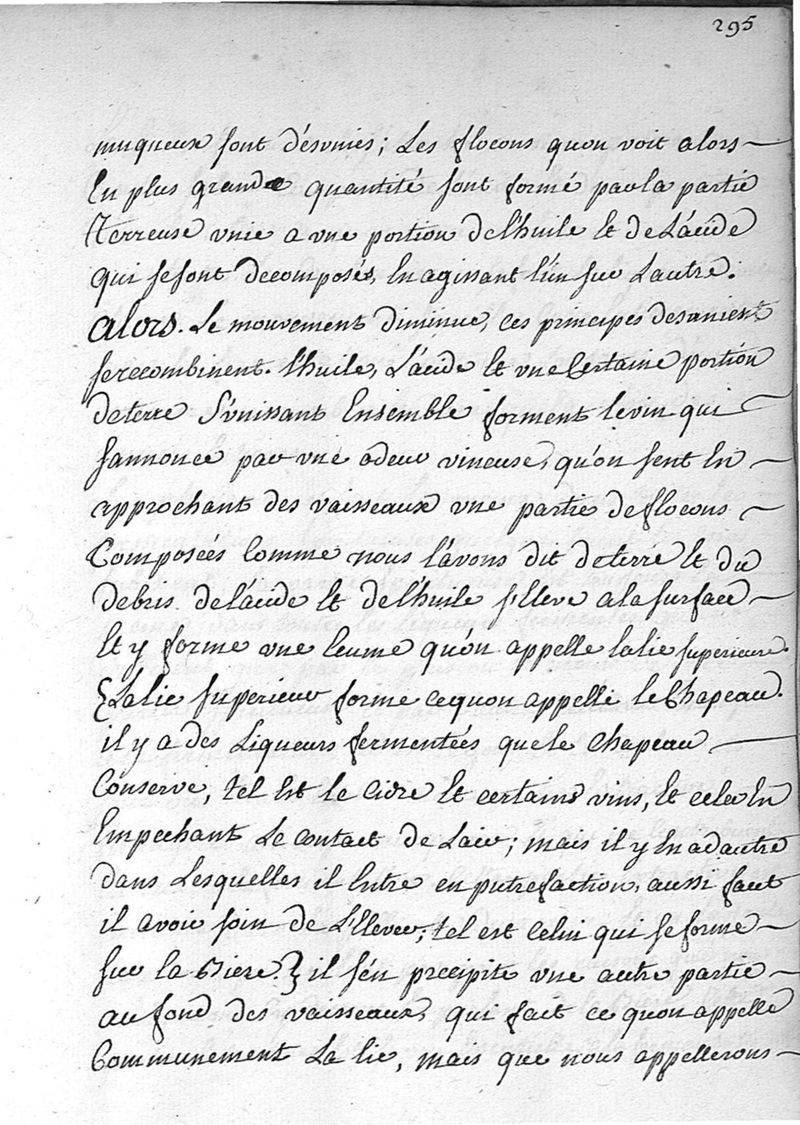 295
muqueux sont désunies; Les flocons quon voit alors
En plus grande quantité sont formé par la partie
terreuse unie a une portion de l'huile Et de L'acide
qui se sont decomposés, En agissant l'un sur L'autre.
alors. Le mouvement diminue, ces principes desunient
se recombinent. l'huile, L'acide Et une Certaine portion
de terre S'unissant Ensemble forment le vin qui
s'annonce par une odeur vineuse, qu'on sent En
approchant des vaisseaux une partie de flocons
Composées Comme nous l'avons dit de terre Et du
debris de l'acide Et de l'huile s'Eleve a la surface
Et y forme une Ecume qu'on appelle la lie superieure.
{ La lie superieur forme ce quon appelle le Chapeau.
il y a des Liqueurs fermentées que le Chapeau
Conserve, tel Est le Cidre Et certains vins, Et cela En
Empechant Le contact de L'air; mais il y En a d'autre
dans Lesquelles il Entre en putrefaction, aussi faut
il avoir soin de L'Elever; tel est Celui qui se forme
sur la Biere } il s'en precipite une autre partie
au fond des vaisseaux, qui fait ce quon appelle
Communement La lie, mais que nous appellerons